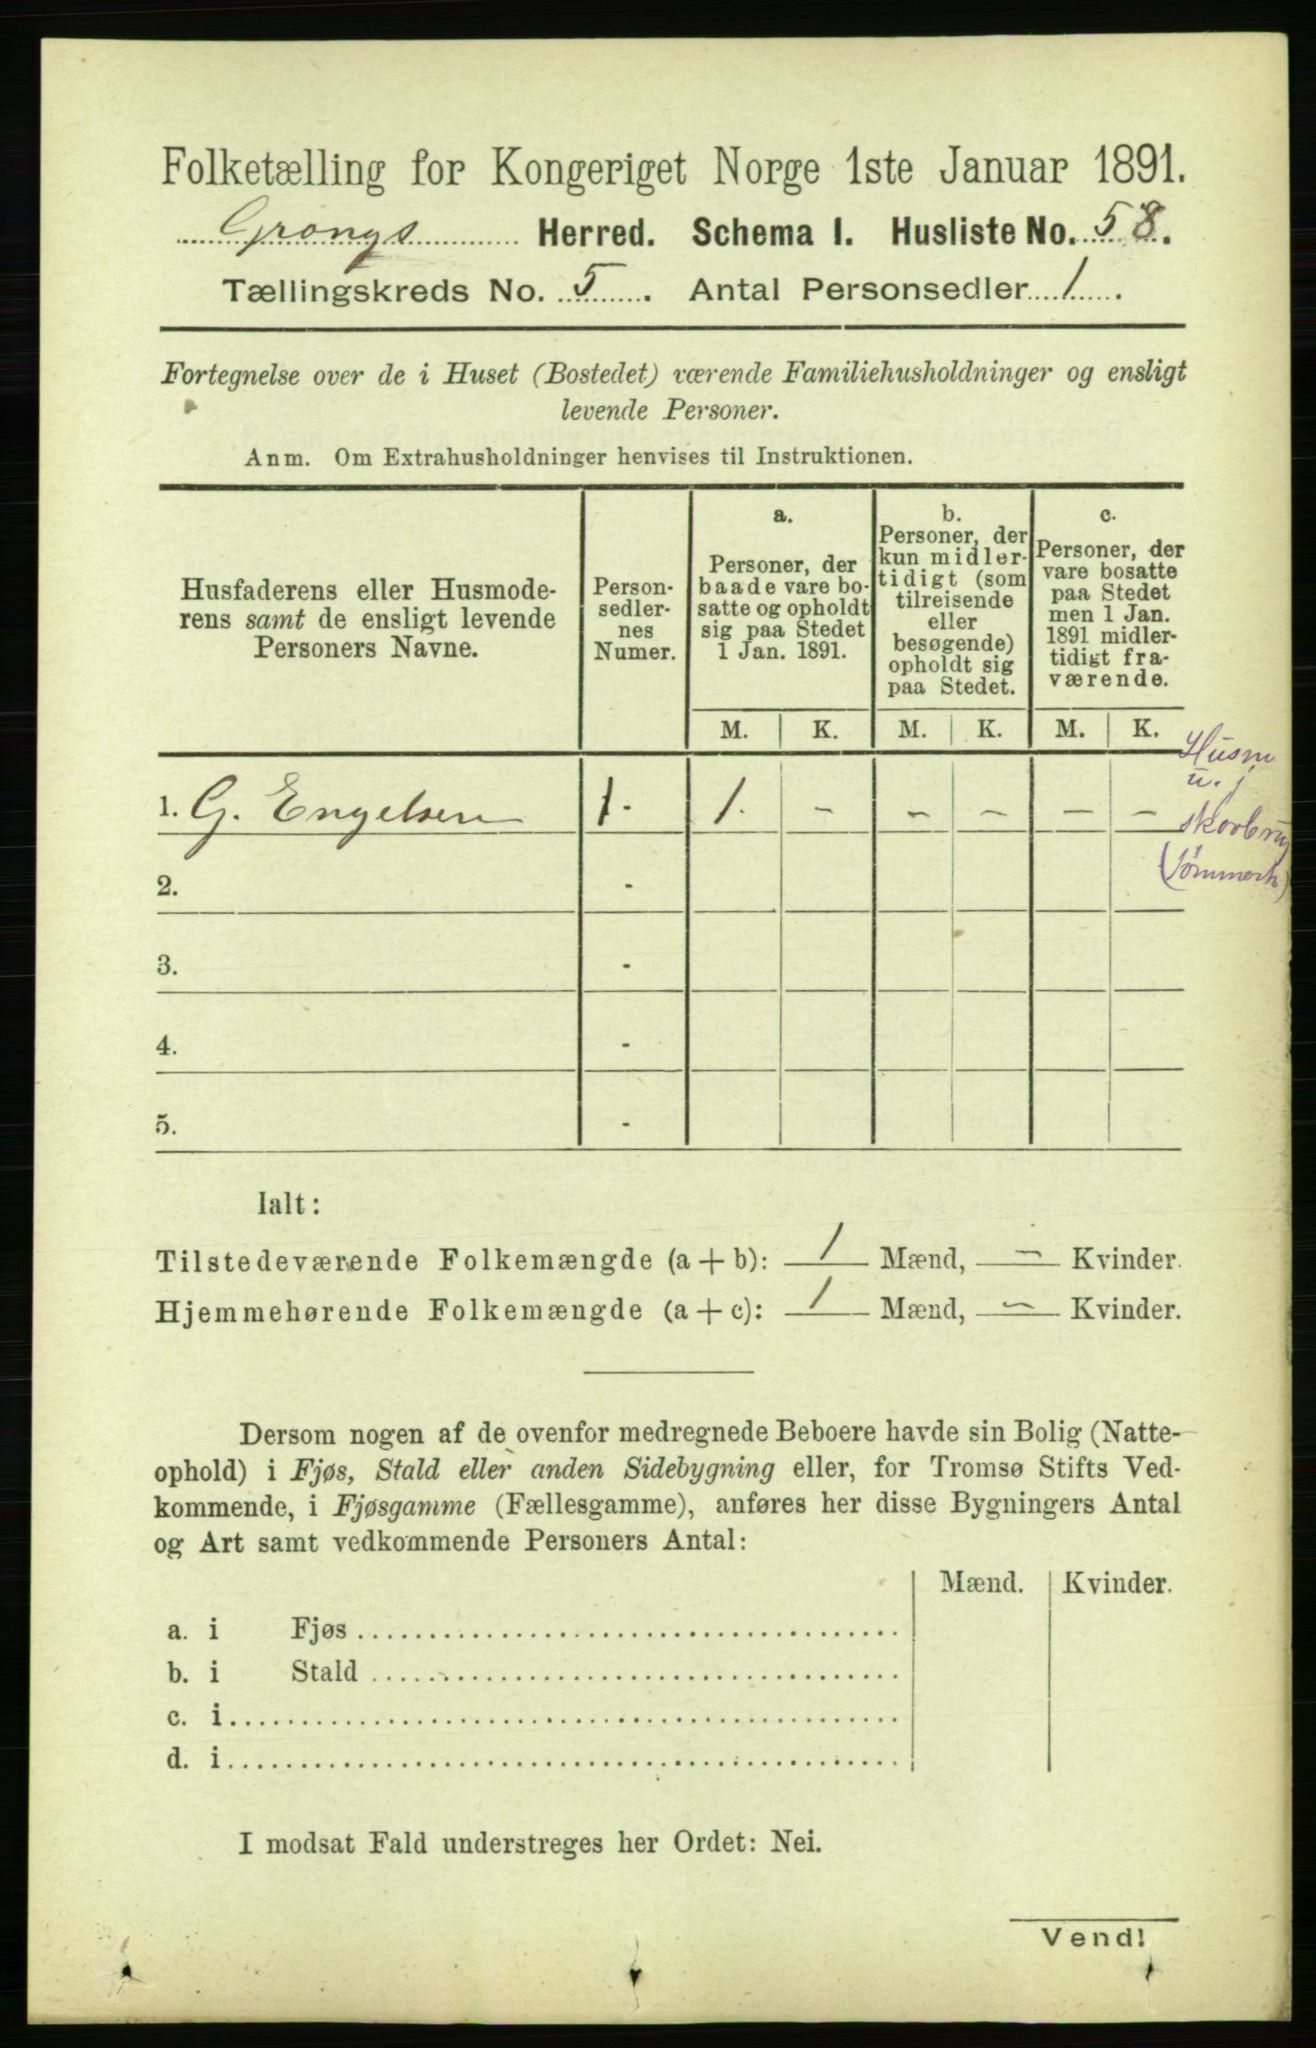 Folketælling for Kongeriget Norge 1ste Januar 1891.
Grongs Herred. Schema I. Husliste No. 58.
Tællingskreds No. 5. Antal Personsedler 1.
Fortegnelse over de i Huset (Bostedet) værende Familiehusholdninger og ensligt
levende Personer.
Anm. Om Extrahusholdninger henvises til Instruktionen.
Husfaderens eller Husmode-
rens samt de ensligt levende
Personers Navne.
Person-
sedler-
nes
Numer.
a.
Personer, der
baade vare bo-
satte og opholdt
sig paa Stedet
1 Jan. 1891.
b.
Personer, der
kun midler-
tidigt (som
tilreisende
eller
besøgende)
opholdt sig
paa Stedet.
c.
Personer, der
vare bosatte
paa Stedet
men 1 Jan.
1891 midler-
tidigt fra-
værende.
M. K. M. K. M. K.
Husm
u. j
1. G. Engelsen 1 - 1. - - - - -
2. -
3. -
4. -
5. -
Ialt:
Tilstedeværende Folkemængde (a + b): 1 Mænd, - Kvinder.
Hjemmehørende Folkemængde (a + c): 1 Mænd, - Kvinder.
Dersom nogen af de ovenfor medregnede Beboere havde sin Bolig (Natte-
ophold) i Fjøs, Stald eller anden Sidebygning eller, for Tromsø Stifts Ved-
kommende, i Fjøsgamme (Fællesgamme), anføres her disse Bygningers Antal
og Art samt vedkommende Personers Antal:
Mænd. Kvinder.
a. i Fjøs
b. i Stald
c. i
d. i
I modsat Fald understreges her Ordet: Nei.
Vend!